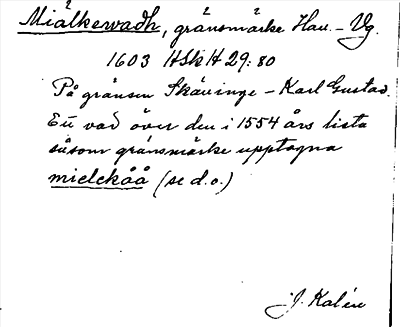 Miälkewadh, gränsmärke Hall.–Vg.
1603 HSkH 29:80
På gränsen Skällinge – Karl Gustav.
Ett vad över den i 1554 års lista
såsom gränsmärke upptagna
mielckåå (se d.o.)
J. Kalén